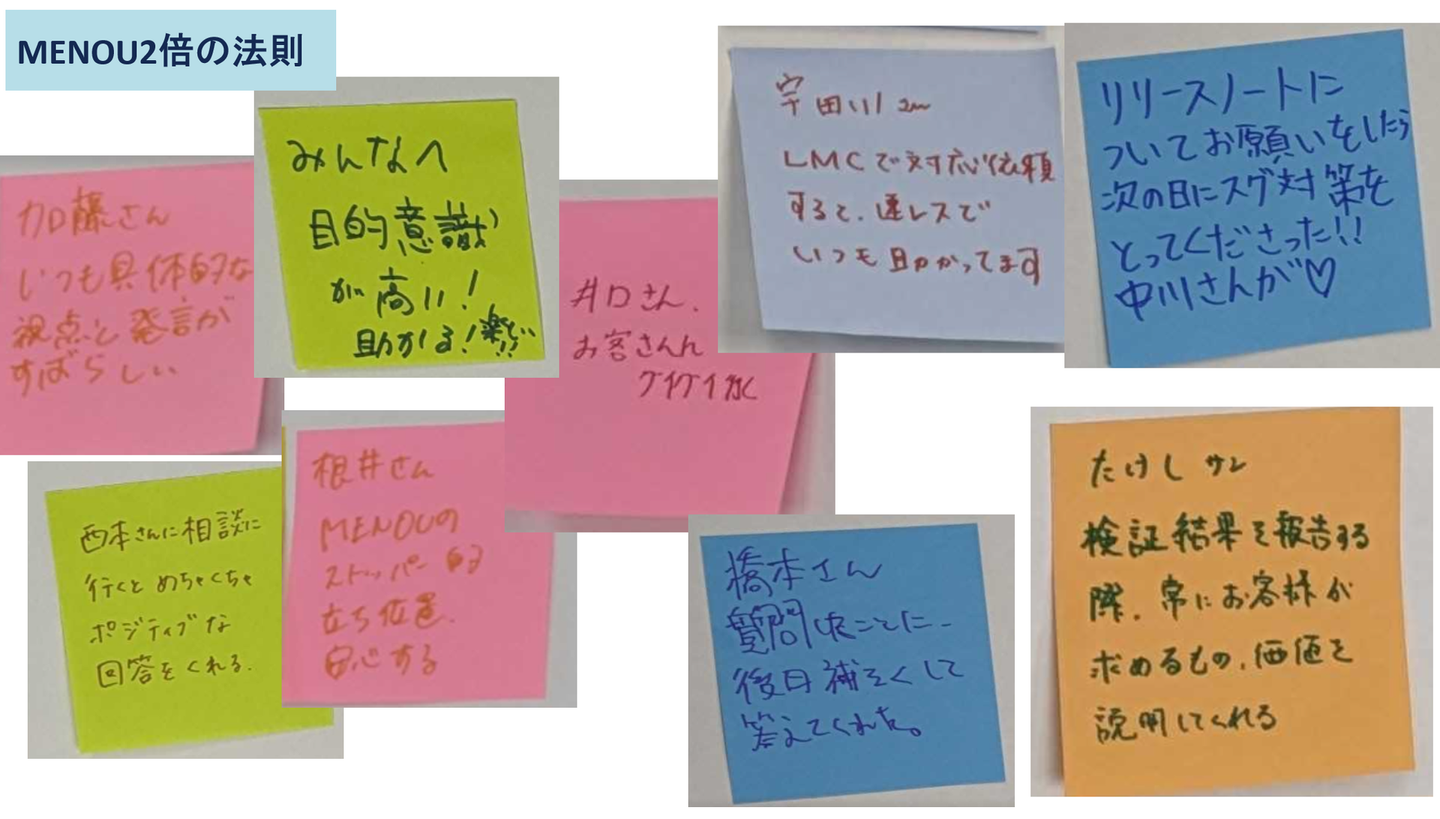 MENOU2倍の法則
加藤さん
いつも具体的な
視点と発言が
すばらしい
みんなへ
目的意識
が高い!
助かる!楽しい!!
井口さん.
お客さんに
グイグイ
宇田川さん
LMCで対応依頼
すると、速レスで
いつも助かってます
リリースノートに
ついてお願いをしたら
次の日にスグ対策を
とってくださった!!
中川さんが♡
西本さんに相談に
行くと めちゃくちゃ
ポジティブな
回答をくれる.
根井さん
MENOUの
ストッパー的
立ち位置.
安心する
橋本さん
質問したことに
後日補そくして
答えてくれた。
たけし サン
検証結果を報告する
際、常にお客様が
求めるもの、価値を
説明してくれる